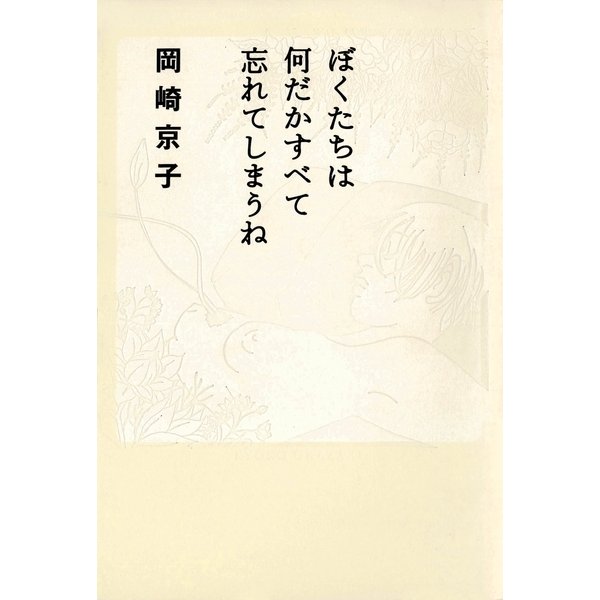 ぼくたちは
何だかすべて
忘れてしまうね
岡崎京子